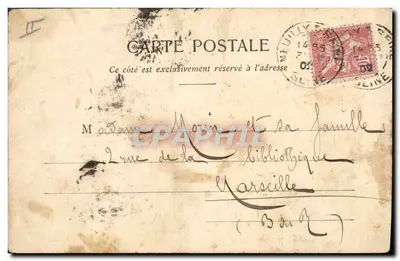 II
CARTE POSTALE
Ce côté est exclusivement réservé à l'adresse
NEUILLY
SEINE
SEINE
Madame Morin et sa famille
2 rue de la bibliothèque
Marseille
(B du R)
CPArama.com